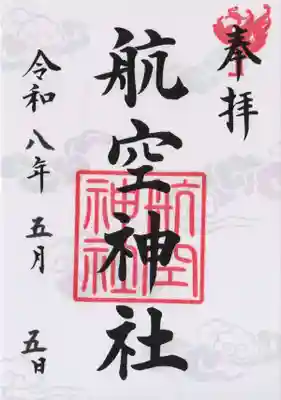 奉拝
航空神社
航空
神社
令和八年五月五日